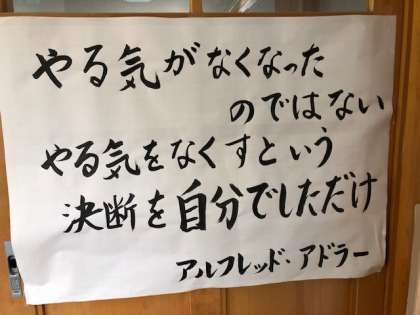 やる気がなくなった
のではない
やる気をなくすという
決断を自分でしただけ
アルフレッド・アドラー